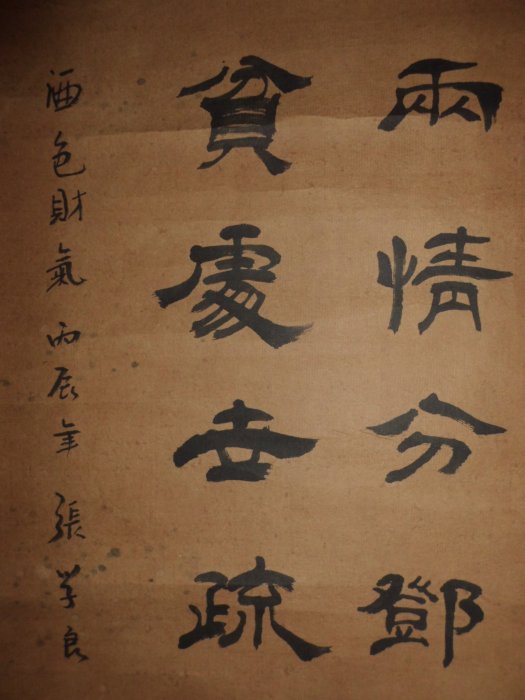 兩情分鄧
貧處去疏
酒色財氣 丙辰年 張学良